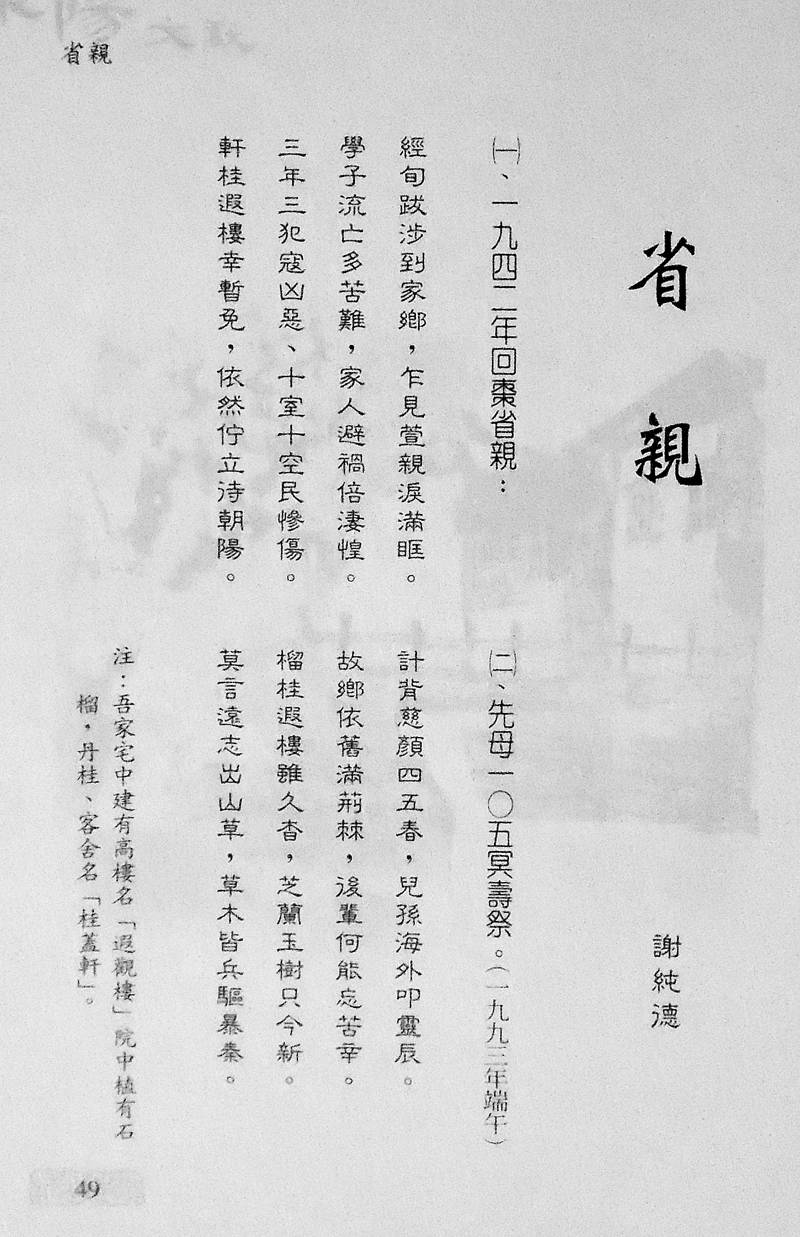 省親
省親
謝純德
㈠、一九四二年回棗省親：
經旬跋涉到家鄉，乍見萱親淚滿眶。
學子流亡多苦難，家人避禍倍淒惶。
三年三犯寇凶惡、十室十空民慘傷。
軒桂遐樓幸暫免，依然佇立待朝陽。
㈡、先母一〇五冥壽祭。（一九九三年端午）
計背慈顏四五春，兒孫海外叩靈辰。
故鄉依舊滿荊棘，後輩何能忘苦辛。
榴桂遐樓雖久杳，芝蘭玉樹只今新。
莫言遠志出山草，草木皆兵驅暴秦。
注：吾家宅中建有高樓名「遐觀樓」院中植有石
榴，丹桂、客舍名「桂蓋軒」。
49